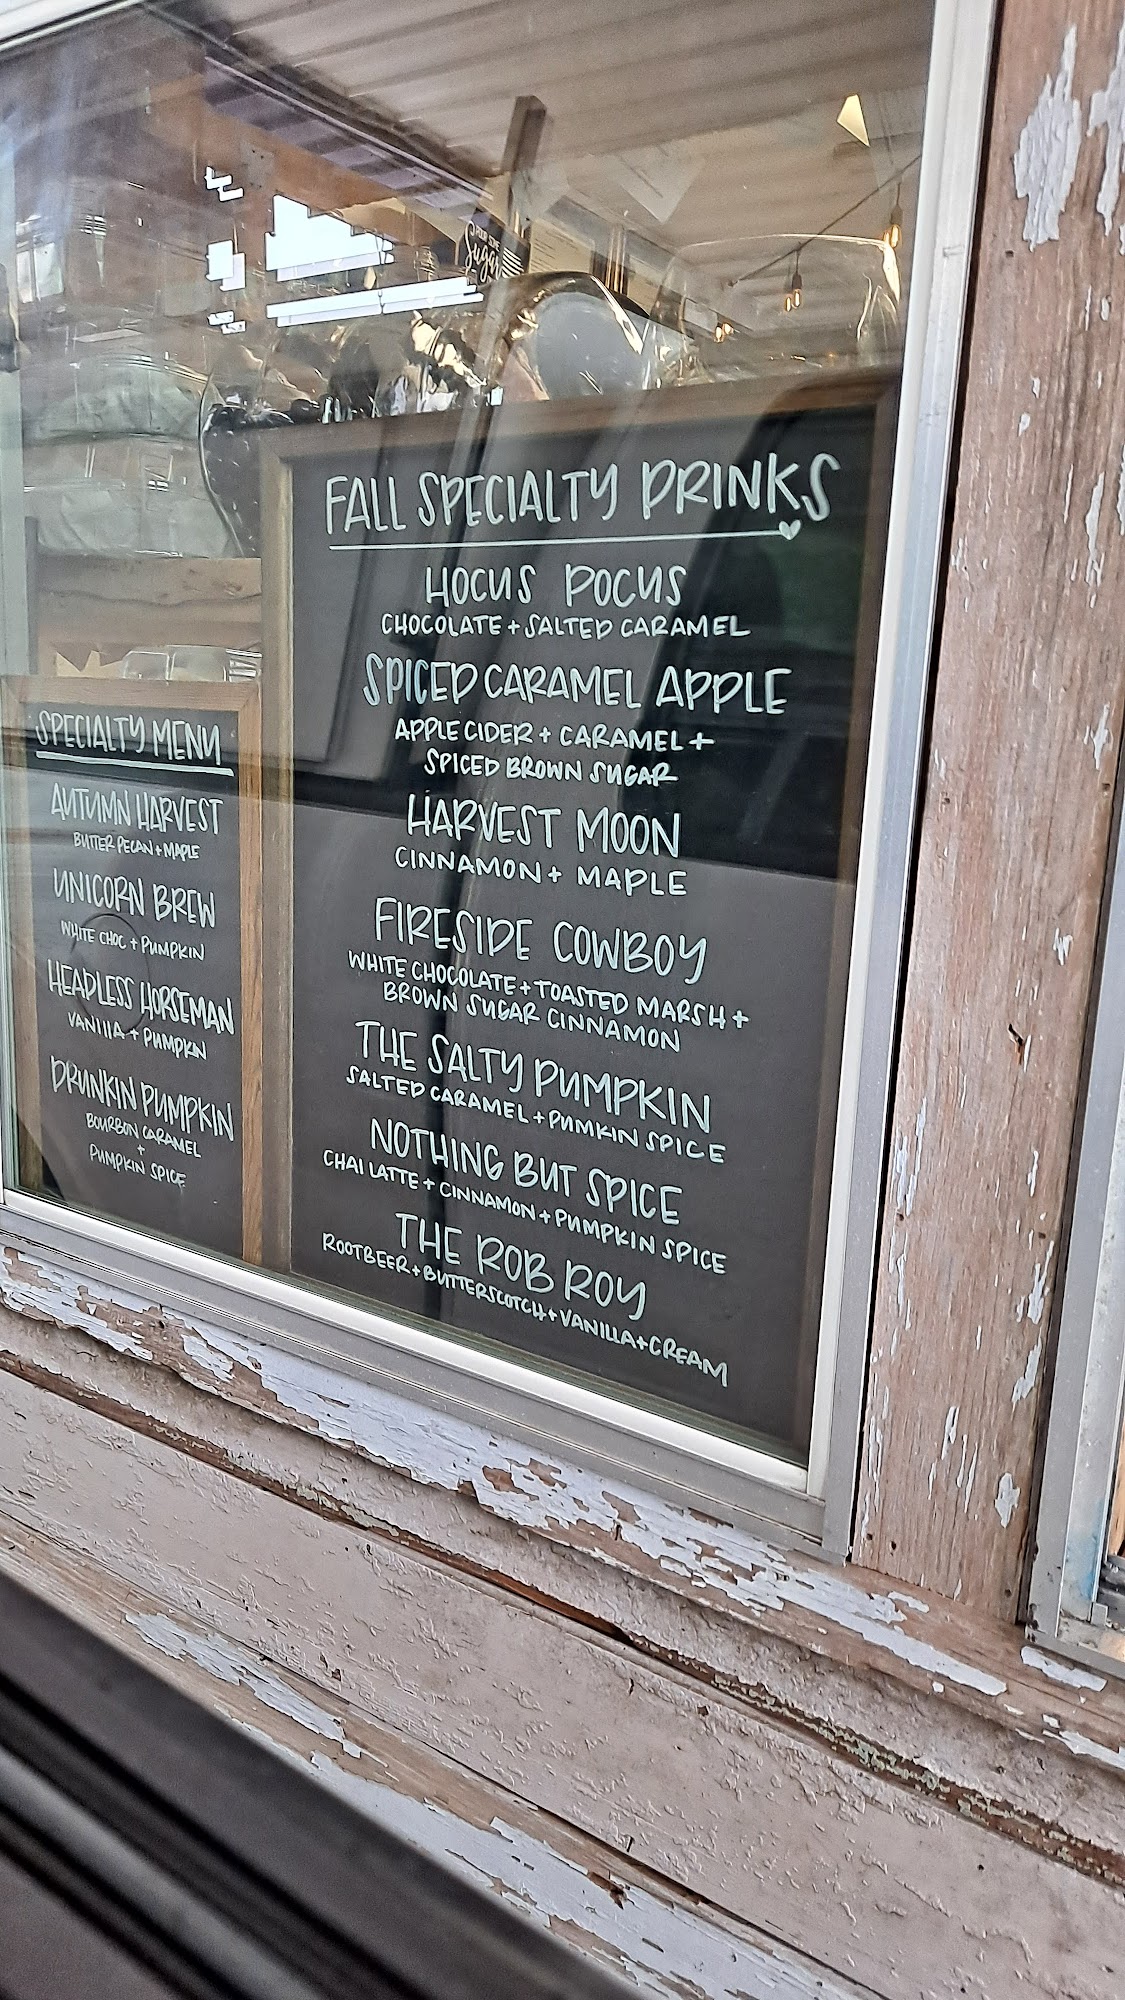 POUR SOME
Sugar
FALL SPECIALTY DRINKS
HOCUS POCUS
CHOCOLATE + SALTED CARAMEL
SPICED CARAMEL APPLE
APPLE CIDER + CARAMEL +
SPICED BROWN SUGAR
HARVEST MOON
CINNAMON + MAPLE
FIRESIDE COWBOY
WHITE CHOCOLATE + TOASTED MARSH +
BROWN SUGAR CINNAMON
THE SALTY PUMPKIN
SALTED CARAMEL + PUMKIN SPICE
NOTHING BUT SPICE
CHAI LATTE + CINNAMON + PUMPKIN SPICE
THE ROB ROY
ROOTBEER + BUTTERSCOTCH + VANILLA + CREAM
SPECIALTY MENU
AUTUMN HARVEST
BUTTER PECAN + MAPLE
UNICORN BREW
WHITE CHOC + PUMPKIN
HEADLESS HORSEMAN
VANILLA + PUMPKIN
DRUNKIN PUMPKIN
BOURBON CARAMEL
+
PUMPKIN SPICE